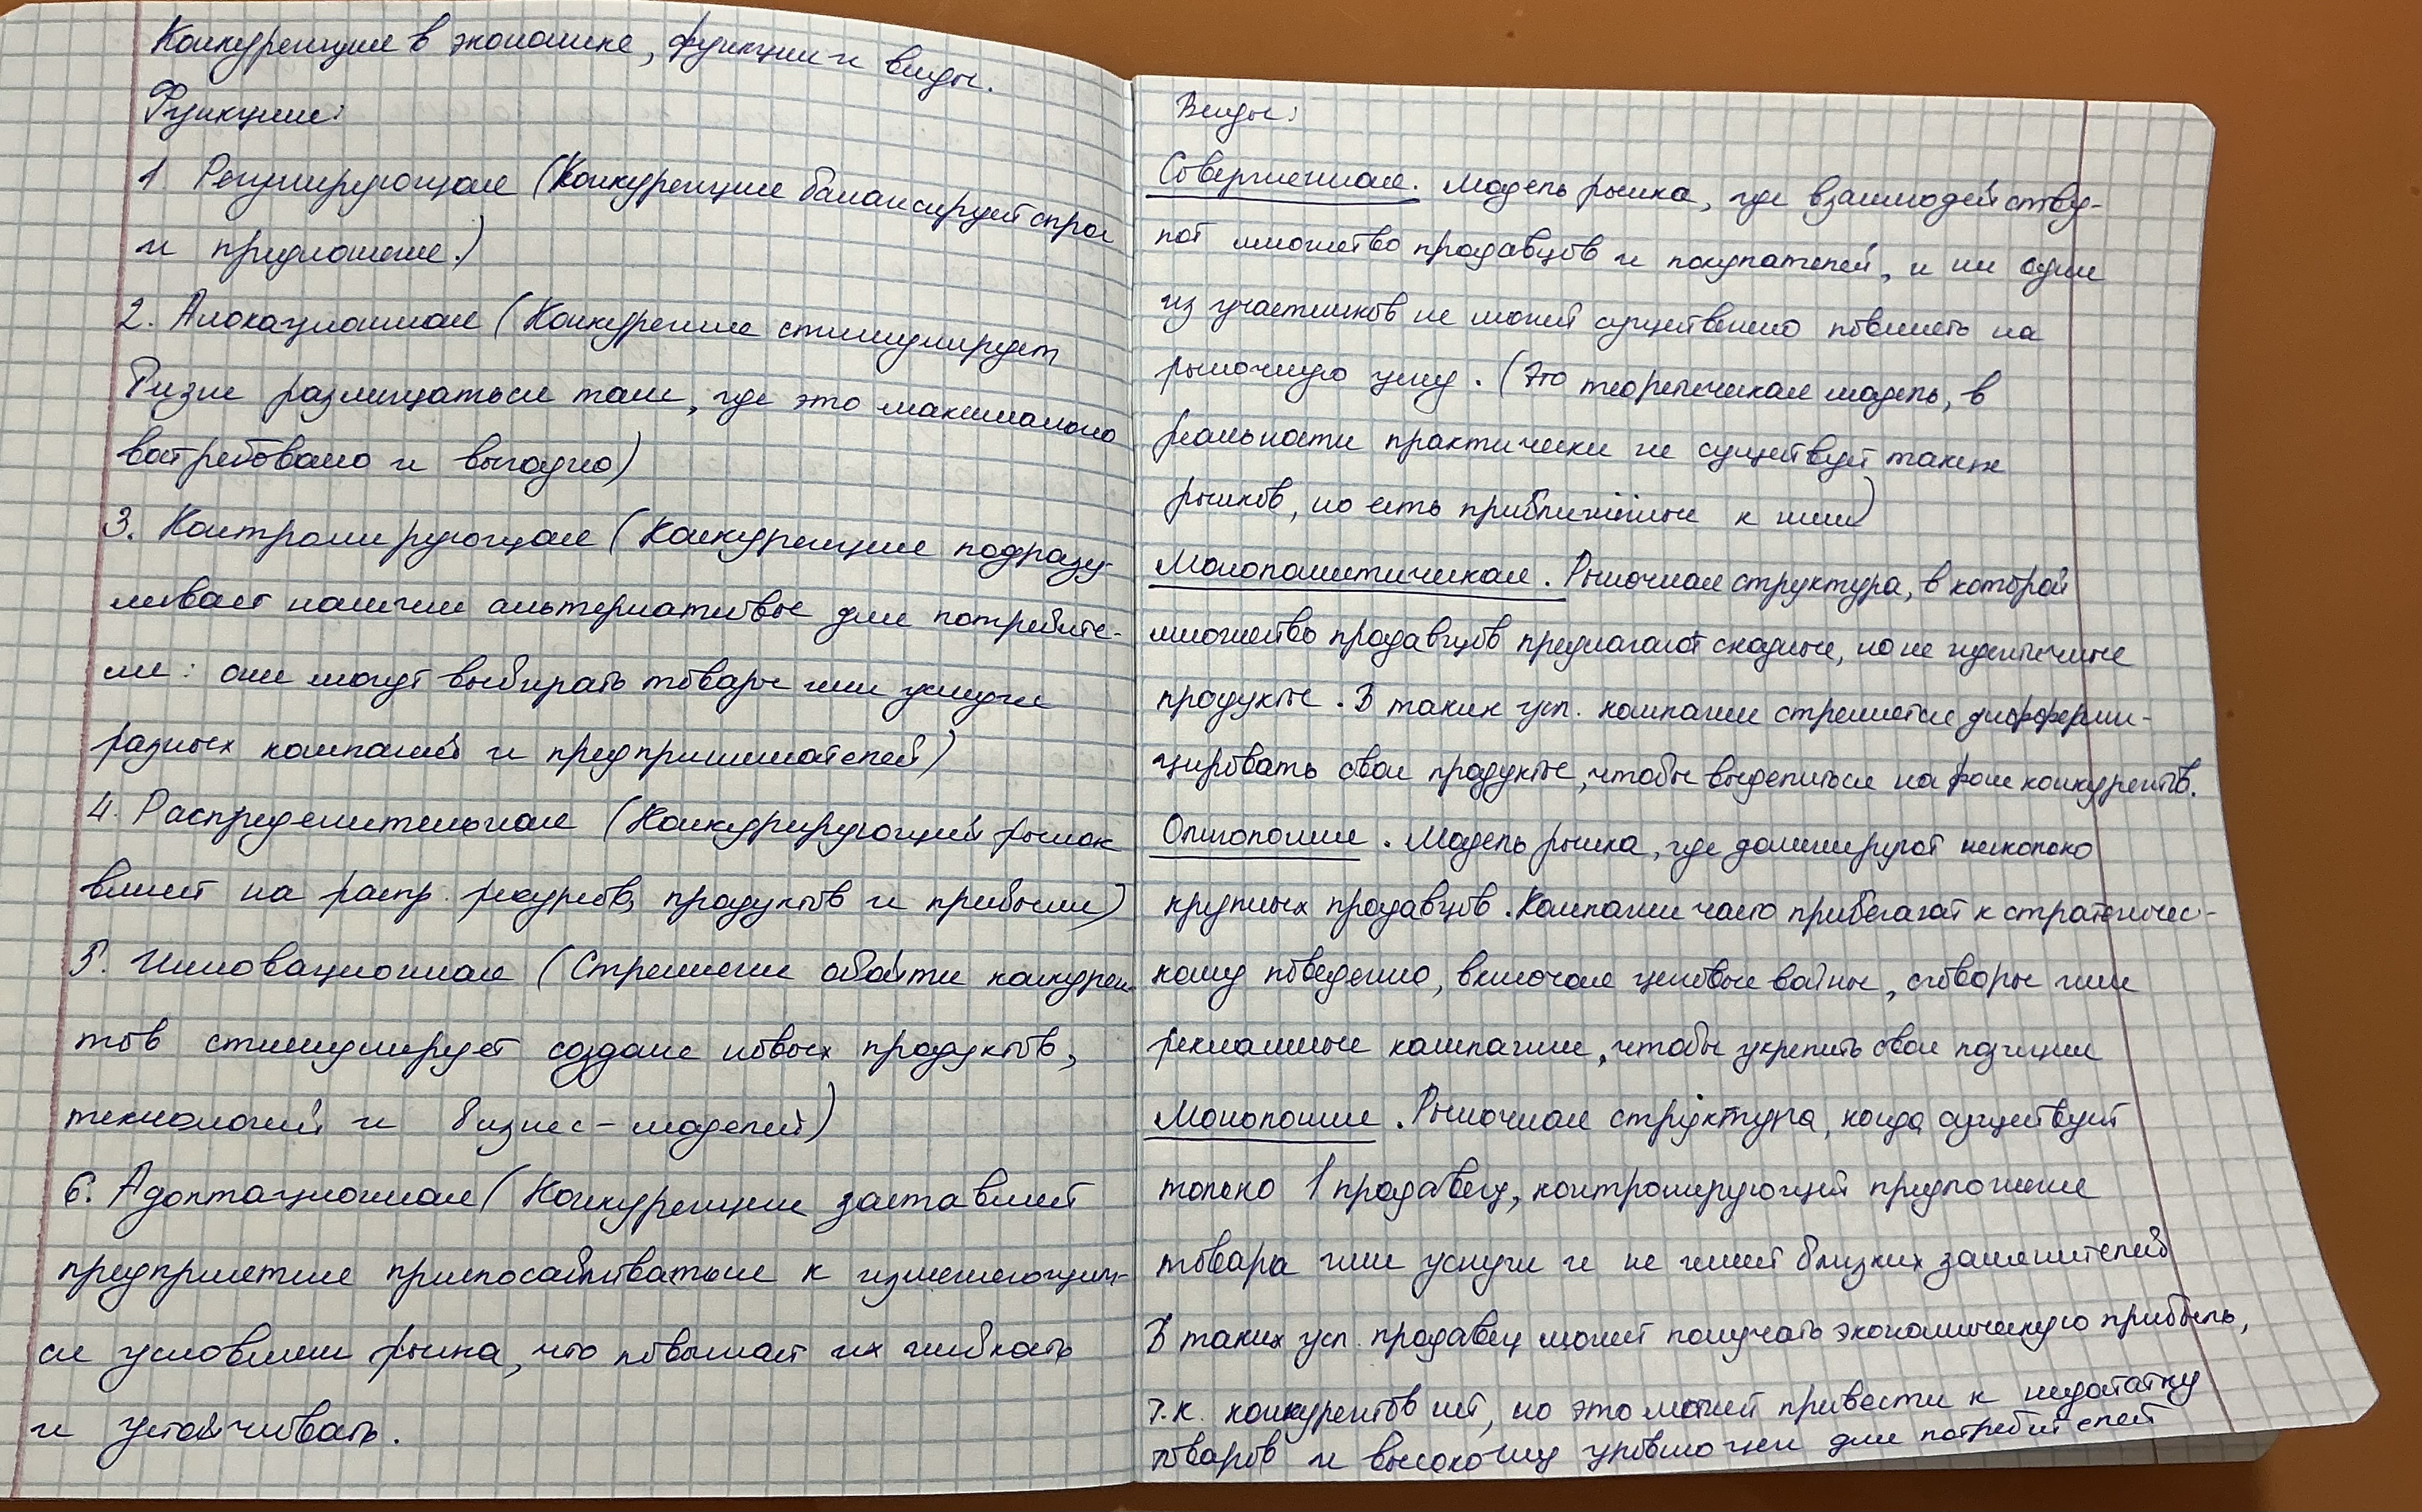 Конкуренция в экономике, функции и виды.
Функции:
1. Регулирующая (Конкуренция балансирует спрос
и предложение.)
2. Алокационная (Конкуренция стимулирует
размещаться там, где это максимально
востребовано и выгодно)
3. Контролирующая (Конкуренция подразу-
мевает наличие альтернативы для потребите-
ля: они могут выбирать товары или услуги
разных компаний и предпринимателей)
4. Распределительная (Конкурирующий рынок
влияет на распр. ресурсов, продуктов и прибыли)
5. Инновационная (Стремление обойти конкурен-
тов стимулирует создание новых продуктов,
технологий и бизнес-моделей)
6. Адоптационная (Конкуренция заставляет
предприятие приспосабливаться к изменяющим-
ся условиям рынка, что повышает их гибкость
и устойчивость.
Виды:
Совершенная. Модель рынка, где взаимодейству-
ют множество продавцов и покупателей, и ни один
из участников не может существенно повлиять на
рыночную цену. (Это теоретическая модель, в
реальности практически не существует таких
рынков, но есть приближённые к ним)
Монополистическая. Рыночная структура, в которой
множество продавцов предлагают сходные, но не идентичные
продукты. В таких усл. компании стремятся дифферен-
цировать свои продукты, чтобы выделиться на фоне конкурентов.
Олигополия. Модель рынка, где доминируют несколько
крупных продавцов. Компании часто прибегают к стратегичес-
кому поведению, включая ценовые войны, сговоры или
рекламные кампании, чтобы укрепить свои позиции
Монополия. Рыночная структура, когда существует
только 1 продавец, контролирующий предложение
товара или услуги и не имеет близких заменителей
В таких усл. продавец может получать экономическую прибыль,
т.к. конкурентов нет, но это может привести к недостатку
товаров и высокому уровню цен для потребителей